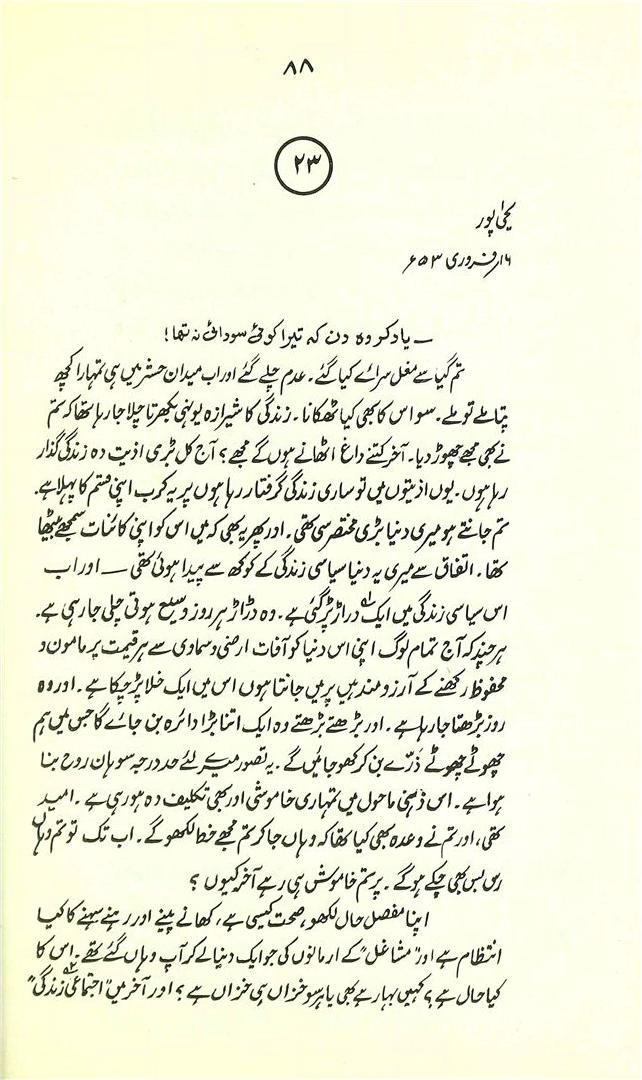 ۸۸
۲۳
یحییٰ پور
۱۶ر فروری ۵۳ء
— یاد کرو وہ دن کہ تیرا کوئی سودائی نہ تھا!
تم گیا سے مغل سرائے کیا گئے۔ عدم چلے گئے اور اب میدان حشر میں ہی تمہارا کچھ
پتا ملے تو ملے۔ سو اس کا بھی کیا ٹھکانا۔ زندگی کا شیرازہ یونہی بکھرتا چلا جا رہا تھا کہ تم
نے بھی مجھے چھوڑ دیا۔ آخر کتنے داغ اٹھانے ہوں گے مجھے؟ آج کل بڑی اذیت دہ زندگی گذار
رہا ہوں۔ یوں اذیتوں میں تو ساری زندگی گرفتار رہا ہوں پر یہ کرب اپنی قسم کا پہلا ہے۔
تم جانتے ہو میری دنیا بڑی مختصر سی تھی۔ اور پھر یہ بھی کہ میں اس کو اپنی کائنات سمجھے بیٹھا
تھا۔ اتفاق سے میری یہ دنیا سیاسی زندگی کے کوکھ سے پیدا ہوئی تھی — اور اب
اس سیاسی زندگی میں ایک دراڑ پڑ گئی ہے۔ وہ دراڑ ہر روز وسیع ہوتی چلی جا رہی ہے۔
ہر چند کہ آج تمام لوگ اپنی اس دنیا کو آفات ارضی و سماوی سے ہر قیمت پر مامون و
محفوظ رکھنے کے آرزو مند ہیں پر میں جانتا ہوں اس میں ایک خلا پڑ چکا ہے۔ اور وہ
روز بڑھتا جا رہا ہے۔ اور بڑھتے بڑھتے وہ ایک اتنا بڑا دائرہ بن جائے گا جس میں ہم
چھوٹے چھوٹے ذرّے بن کر کھو جائیں گے۔ یہ تصور میرے لئے حد درجہ سوہان روح بنا
ہوا ہے۔ اس ذہنی ماحول میں تمہاری خاموشی اور بھی تکلیف دہ ہو رہی ہے۔ امید
تھی، اور تم نے وعدہ بھی کیا تھا کہ وہاں جا کر تم مجھے خط لکھو گے۔ اب تک تو تم وہاں
رس بس بھی چکے ہوگے۔ پر تم خاموش ہی رہے آخر کیوں؟
اپنا مفصل حال لکھو، صحت کیسی ہے، کھانے پینے اور رہنے سہنے کا کیا
انتظام ہے اور "مشاغل" کے ارمانوں کی جو ایک دنیا لے کر آپ وہاں گئے تھے۔ اس کا
کیا حال ہے؟ کہیں بہار ہے بھی یا ہر سو خزاں ہی خزاں ہے؟ اور آخر میں "اجتماعی زندگی"